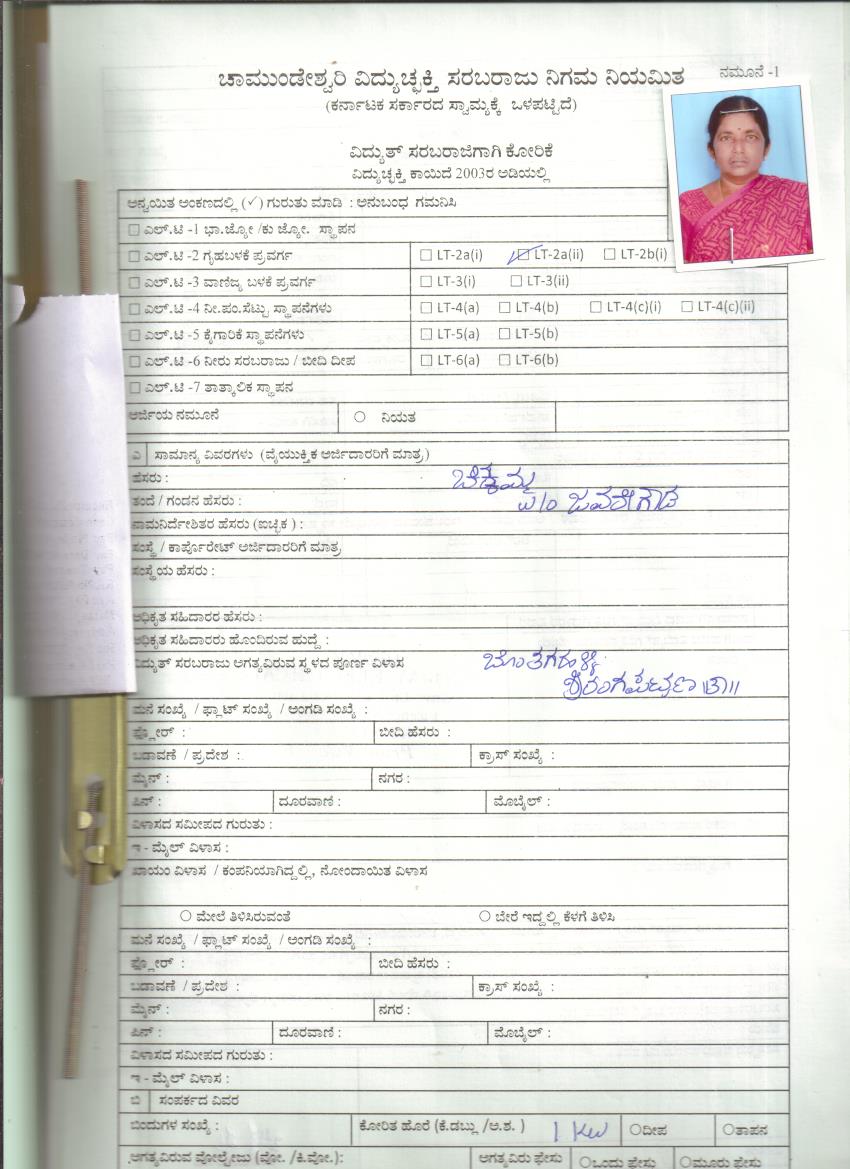 ನಮೂನೆ -1
ಚಾಮುಂಡೇಶ್ವರಿ ವಿದ್ಯುಚ್ಛಕ್ತಿ ಸರಬರಾಜು ನಿಗಮ ನಿಯಮಿತ
(ಕರ್ನಾಟಕ ಸರ್ಕಾರದ ಸ್ವಾಮ್ಯಕ್ಕೆ ಒಳಪಟ್ಟಿದೆ)
ವಿದ್ಯುತ್ ಸರಬರಾಜಿಗಾಗಿ ಕೋರಿಕೆ
ವಿದ್ಯುಚ್ಛಕ್ತಿ ಕಾಯಿದೆ 2003ರ ಅಡಿಯಲ್ಲಿ
ಅನ್ವಯಿತ ಅಂಕಣದಲ್ಲಿ (✓) ಗುರುತು ಮಾಡಿ : ಅನುಬಂಧ ಗಮನಿಸಿ
☐ ಎಲ್.ಟಿ -1 ಭಾ.ಜ್ಯೋ /ಕು ಜ್ಯೋ. ಸ್ಥಾಪನ
☐ ಎಲ್.ಟಿ -2 ಗೃಹಬಳಕೆ ಪ್ರವರ್ಗ ☐ LT-2a(i) ☑ LT-2a(ii) ☐ LT-2b(i)
☐ ಎಲ್.ಟಿ -3 ವಾಣಿಜ್ಯ ಬಳಕೆ ಪ್ರವರ್ಗ ☐ LT-3(i) ☐ LT-3(ii)
☐ ಎಲ್.ಟಿ -4 ನೀ.ಪಂ.ಸೆಟ್ಟು ಸ್ಥಾಪನೆಗಳು ☐ LT-4(a) ☐ LT-4(b) ☐ LT-4(c)(i) ☐ LT-4(c)(ii)
☐ ಎಲ್.ಟಿ -5 ಕೈಗಾರಿಕೆ ಸ್ಥಾಪನೆಗಳು ☐ LT-5(a) ☐ LT-5(b)
☐ ಎಲ್.ಟಿ -6 ನೀರು ಸರಬರಾಜು / ಬೀದಿ ದೀಪ ☐ LT-6(a) ☐ LT-6(b)
☐ ಎಲ್.ಟಿ -7 ತಾತ್ಕಾಲಿಕ ಸ್ಥಾಪನ
ಅರ್ಜಿಯ ನಮೂನೆ ○ ನಿಯತ
ಎ ಸಾಮಾನ್ಯ ವಿವರಗಳು (ವೈಯುಕ್ತಿಕ ಅರ್ಜಿದಾರರಿಗೆ ಮಾತ್ರ)
ಹೆಸರು : ಚಿಕ್ಕಮ್ಮ
ತಂದೆ / ಗಂದನ ಹೆಸರು : W/o ಜವರೇಗೌಡ
ನಾಮನಿರ್ದೇಶಿತರ ಹೆಸರು (ಐಚ್ಛಿಕ ) :
ಸಂಸ್ಥೆ / ಕಾರ್ಪೊರೇಟ್ ಅರ್ಜಿದಾರರಿಗೆ ಮಾತ್ರ
ಸಂಸ್ಥೆಯ ಹೆಸರು :
ಅಧಿಕೃತ ಸಹಿದಾರರ ಹೆಸರು :
ಅಧಿಕೃತ ಸಹಿದಾರರು ಹೊಂದಿರುವ ಹುದ್ದೆ :
ವಿದ್ಯುತ್ ಸರಬರಾಜು ಅಗತ್ಯವಿರುವ ಸ್ಥಳದ ಪೂರ್ಣ ವಿಳಾಸ
ಶ್ರೀರಂಗಪಟ್ಟಣ ತಾ॥
ಮನೆ ಸಂಖ್ಯೆ / ಫ್ಲಾಟ್ ಸಂಖ್ಯೆ / ಅಂಗಡಿ ಸಂಖ್ಯೆ :
ಫ್ಲೋರ್ : ಬೀದಿ ಹೆಸರು :
ಬಡಾವಣೆ / ಪ್ರದೇಶ : ಕ್ರಾಸ್ ಸಂಖ್ಯೆ :
ಮೈನ್ : ನಗರ :
ಪಿನ್ : ದೂರವಾಣಿ : ಮೊಬೈಲ್ :
ವಿಳಾಸದ ಸಮೀಪದ ಗುರುತು :
ಇ - ಮೈಲ್ ವಿಳಾಸ :
ಖಾಯಂ ವಿಳಾಸ / ಕಂಪನಿಯಾಗಿದ್ದಲ್ಲಿ, ನೋಂದಾಯಿತ ವಿಳಾಸ
○ ಮೇಲೆ ತಿಳಿಸಿರುವಂತೆ ○ ಬೇರೆ ಇದ್ದಲ್ಲಿ ಕೆಳಗೆ ತಿಳಿಸಿ
ಮನೆ ಸಂಖ್ಯೆ / ಫ್ಲಾಟ್ ಸಂಖ್ಯೆ / ಅಂಗಡಿ ಸಂಖ್ಯೆ :
ಫ್ಲೋರ್ : ಬೀದಿ ಹೆಸರು :
ಬಡಾವಣೆ / ಪ್ರದೇಶ : ಕ್ರಾಸ್ ಸಂಖ್ಯೆ :
ಮೈನ್ : ನಗರ :
ಪಿನ್ : ದೂರವಾಣಿ : ಮೊಬೈಲ್ :
ವಿಳಾಸದ ಸಮೀಪದ ಗುರುತು :
ಇ - ಮೈಲ್ ವಿಳಾಸ :
ಬಿ ಸಂಪರ್ಕದ ವಿವರ
ಬಿಂದುಗಳ ಸಂಖ್ಯೆ : ಕೋರಿತ ಹೊರೆ (ಕೆ.ಡಬ್ಲು /ಅ.ಶ. ) 1 KW ○ದೀಪ ○ತಾಪನ
ಅಗತ್ಯವಿರುವ ವೋಲ್ಟೇಜು (ವೋ. /ಕಿ.ವೋ.): ಅಗತ್ಯವಿರು ಫೇಸು ○ಒಂದು ಫೇಸು ○ಮೂರು ಫೇಸು